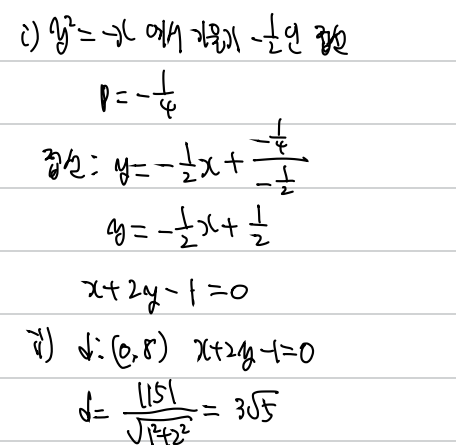 i) y² = -x 에서 기울기 -1/2인 접선
p = -1/4
접선: y = -1/2x + (-1/4)/(-1/2)
y = -1/2x + 1/2
x + 2y - 1 = 0
ii) d: (0, 8) x + 2y - 1 = 0
d = |15|/√(1²+2²) = 3√5